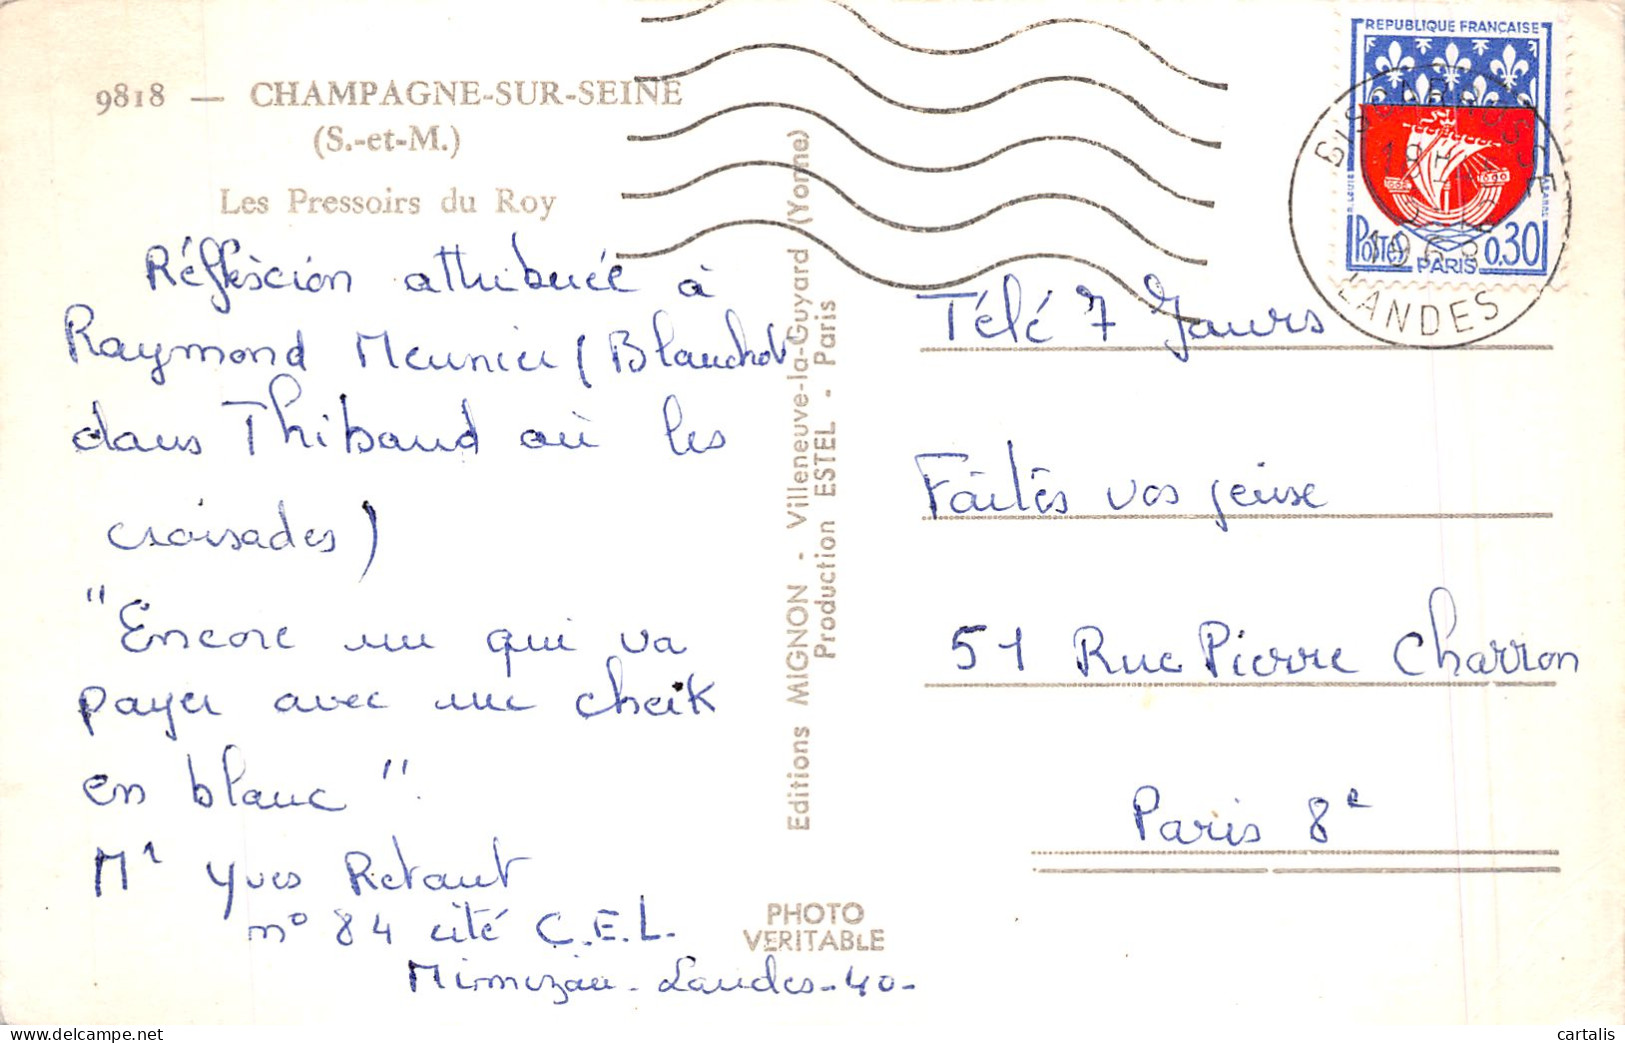 9818 — CHAMPAGNE-SUR-SEINE
(S.-et-M.)
Les Pressoirs du Roy
Réflexion attribuée à
Raymond Meunier (Blanchot
dans Thibaud où les
croisades)
"Encore un qui va
payer avec un cheik
en blanc"
Mr Yves Retaut
n° 84 cité C.E.L.
Mimizan - Landes - 40 -
Editions MIGNON - Villeneuve-la-Guyard (Yonne)
Production ESTEL - Paris
PHOTO
VERITABLE
REPUBLIQUE FRANÇAISE
POSTES
PARIS
0,30
BISCARROSSE
LANDES
Télé 7 Jours
Faites vos jeux
51 Rue Pierre Charron
Paris 8e
cartalis